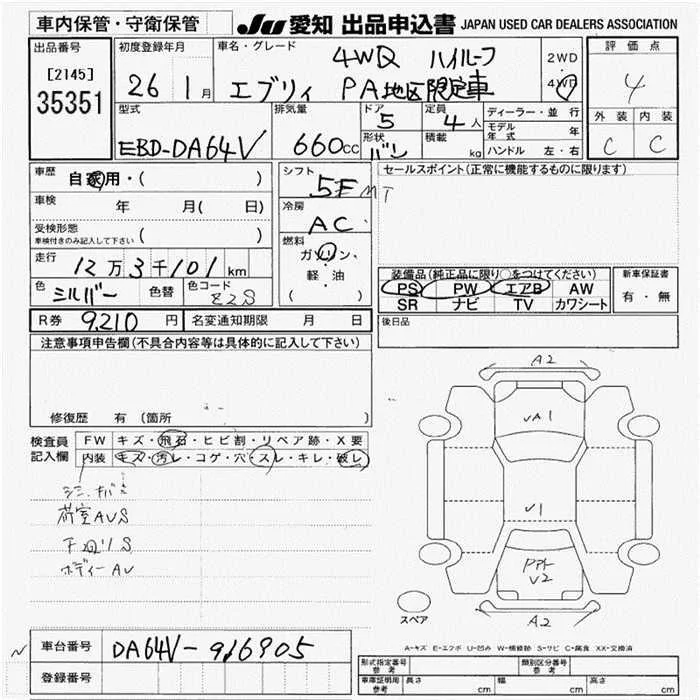 車内保管・守衛保管
JU 愛知 出品申込書 JAPAN USED CAR DEALERS ASSOCIATION
出品番号
[2145]
35351
初度登録年月
26 1月
車名・グレード
4WD ハイルーフ
エブリィ PA地区限定車
2WD
4WD
評価点
4
外装 内装
C C
型式
EBD-DA64V
排気量
660cc
ドア
5
形状
バン
定員
4人
積載
kg
ディーラー・並行
モデル年式 年
ハンドル 左・右
車歴
自家用・( )
車検
年 月( 日)
受検形態
車検付きのみ記入して下さい ( )
走行
12万3千101km
色
シルバー
色替
色コード
Z2S
シフト
5F MT
冷房
AC
燃料
ガソリン・
軽・油
( )
セールスポイント(正常に機能するものに限ります)
装備品(純正品に限り○をつけてください)
PS PW エアB AW
SR ナビ TV カワシート
新車保証書
有・無
R券 9210円
名変通知期限 月 日
後日品
注意事項申告欄(不具合内容等は具体的に記入して下さい)
修復歴 有(箇所 )
検査員
記入欄
FW キズ・飛石・ヒビ割・リペア跡・X要
内装 キズ・汚レ・コゲ・穴・スレ・キレ・破レ
荷室AUS
下回りS
ボディーAU
A2
UA1
U1
U2
A2
スペア
A-キズ E-エクボ U-凹み W-補修跡 S-サビ C-腐食 XX-交換済
車台番号
DA64V-916905
登録番号
型式指定番号
参考
類別区分番号
参考
車庫証明用
参考
長さ cm 幅 cm 高さ cm